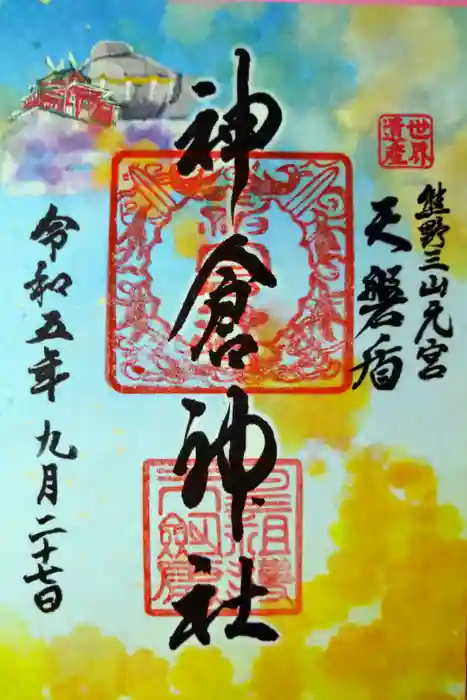 世界
遺産
熊野三山元宮
天磐盾
神倉神社
令和五年 九月二十七日